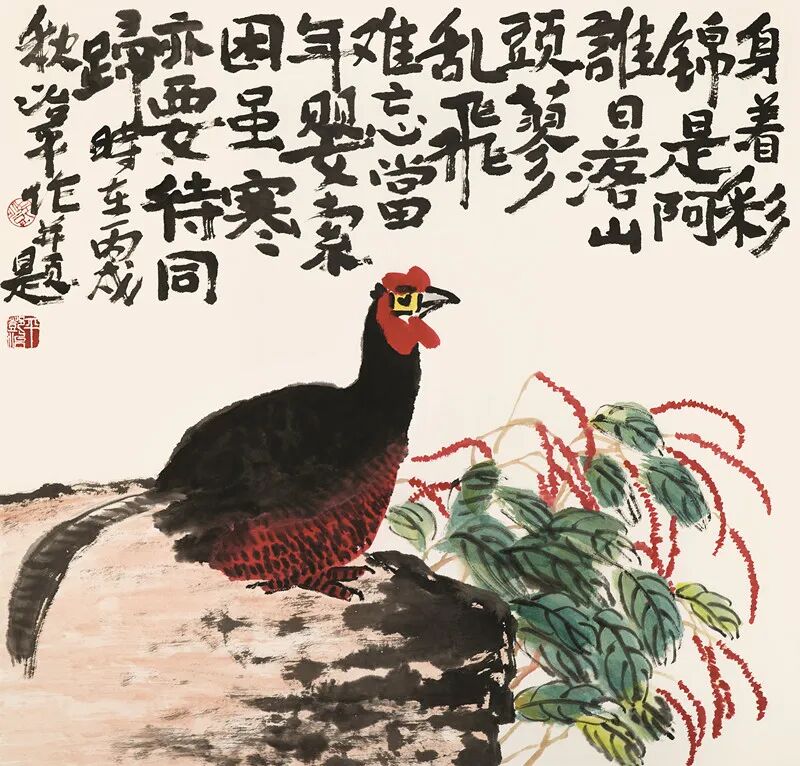 身着彩
锦是阿
誰日落山
頭蓼
乱飛
难忘當
年嬰索
困虽寒
亦要待同
歸時在丙戌
秋治平作并題